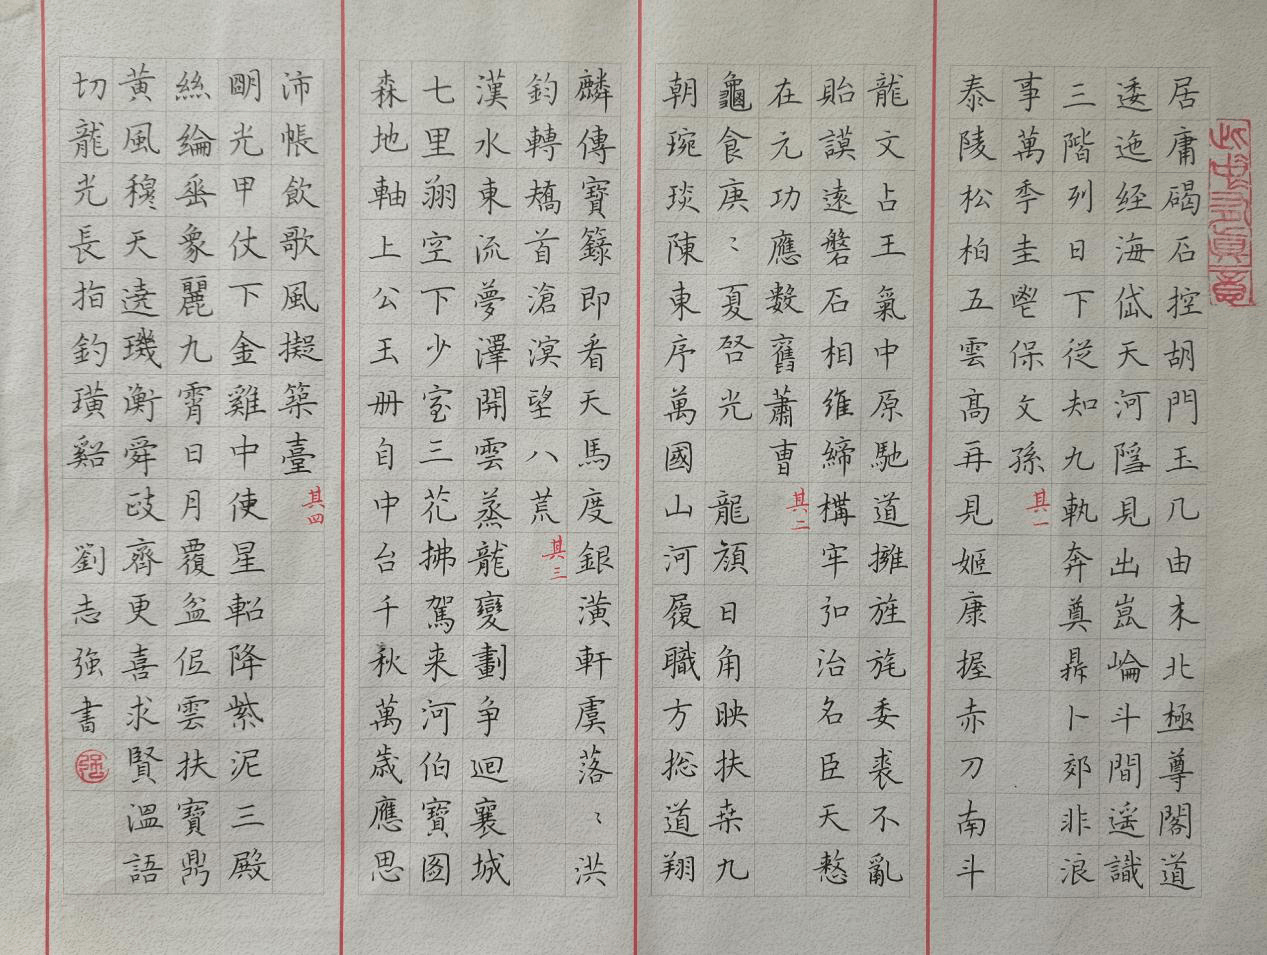 居庸碣石控胡門玉几由来北極尊閣道
逶迤经海岱天河隱見出崑崙斗間遥識
三階列日下従知九執奔奠鼎卜郊非浪
事萬季圭鬯保文孫其一
泰陵松柏五雲高再見姬康握赤刀南斗
龍文占王氣中原馳道擁旌旄委裘不亂
貽謨遠磐石相維締構牢弘治名臣天憖
在元功應数舊蕭曹其二
龜食庚〻夏啓光龍顔日角映扶桒九
朝琬琰陳東序萬國山河履職方捴道翔
麟傳寶籙即看天馬度銀潢軒虞落〻洪
鈞轉矯首滄溟望八荒其三
漢水東流夢澤開雲蒸龍變劃争迴襄城
七里翔空下少室三花拂駕来河伯寶图
森地軸上公玉册自中台千秋萬歲應思
沛帳飲歌風擬築臺其四
明光甲仗下金雞中使星軺降紫泥三殿
絲綸垂象麗九霄日月覆盆低雲扶寶鼎
黄風穆天遶璣衡舜政齊更喜求賢温語
切龍光長指釣璜谿劉志強書